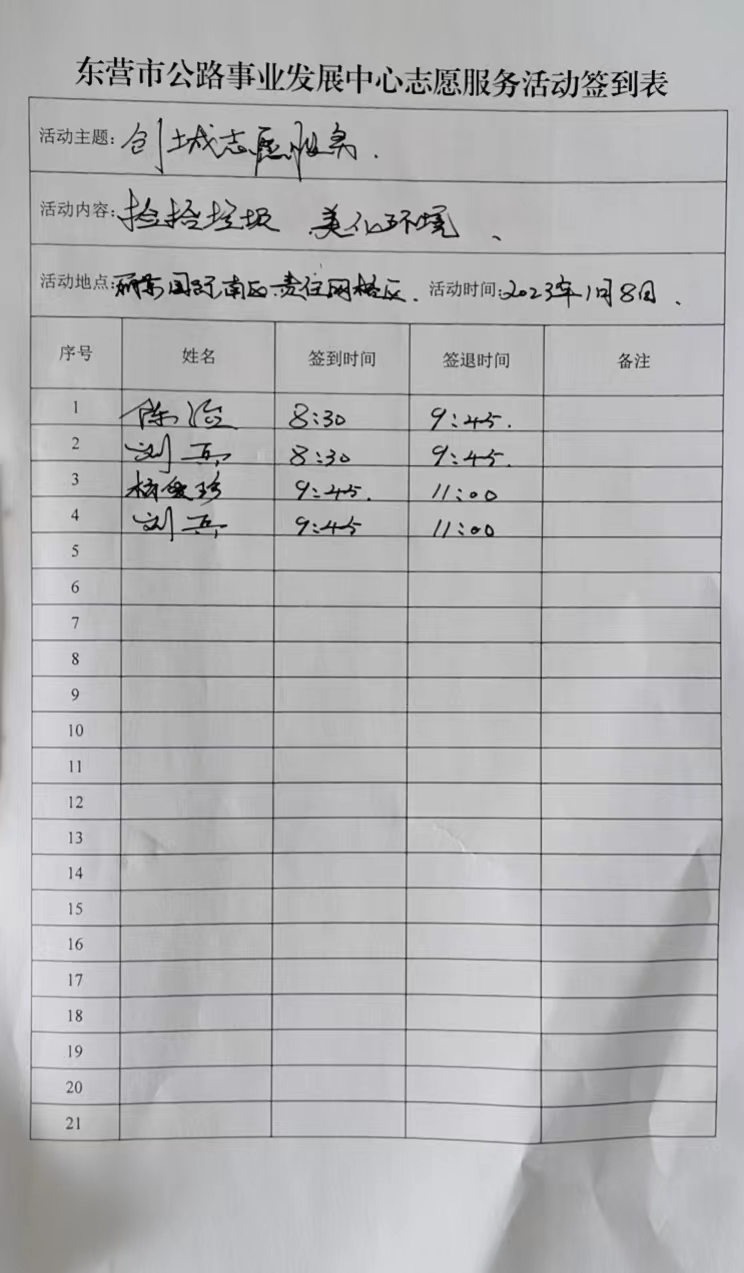 东营市公路事业发展中心志愿服务活动签到表
活动主题: 创城志愿服务.
活动内容: 捡拾垃圾 美化环境、
活动地点: 丽景国际南区责任网格区. 活动时间: 2023年1月8日.
序号 姓名 签到时间 签退时间 备注
1 陈 8:30 9:45.
2 刘兵 8:30 9:45.
3 9:45. 11:00
4 刘兵 9:45 11:00
5
6
7
8
9
10
11
12
13
14
15
16
17
18
19
20
21